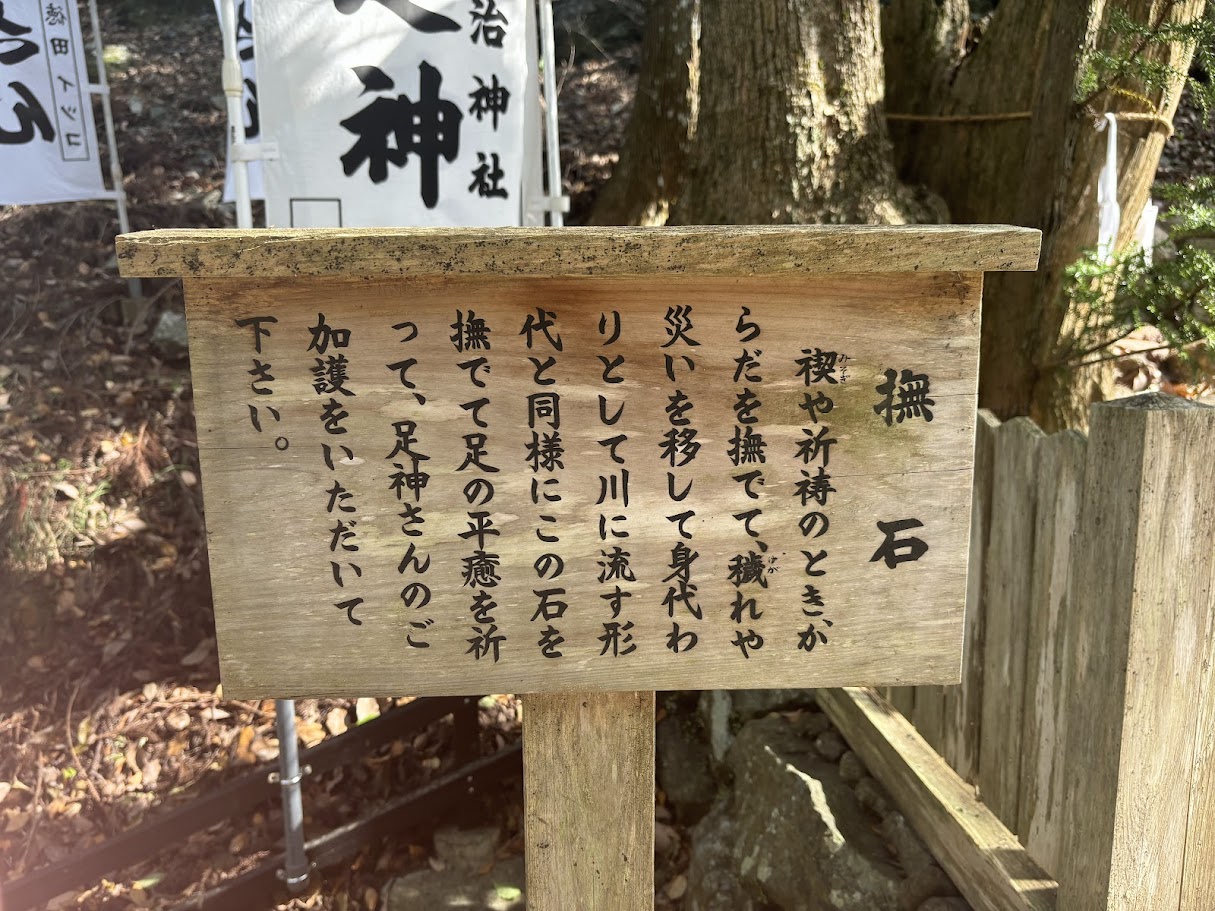 撫石
禊や祈祷のとき、か
みそぎ
らだを撫でて、穢れや
けが
災いを移して身代わ
りとして川に流す形
代と同様にこの石を
撫でて足の平癒を祈
って、足神さんのご
加護をいただいて
下さい。
治神社
神
徳田イツコ